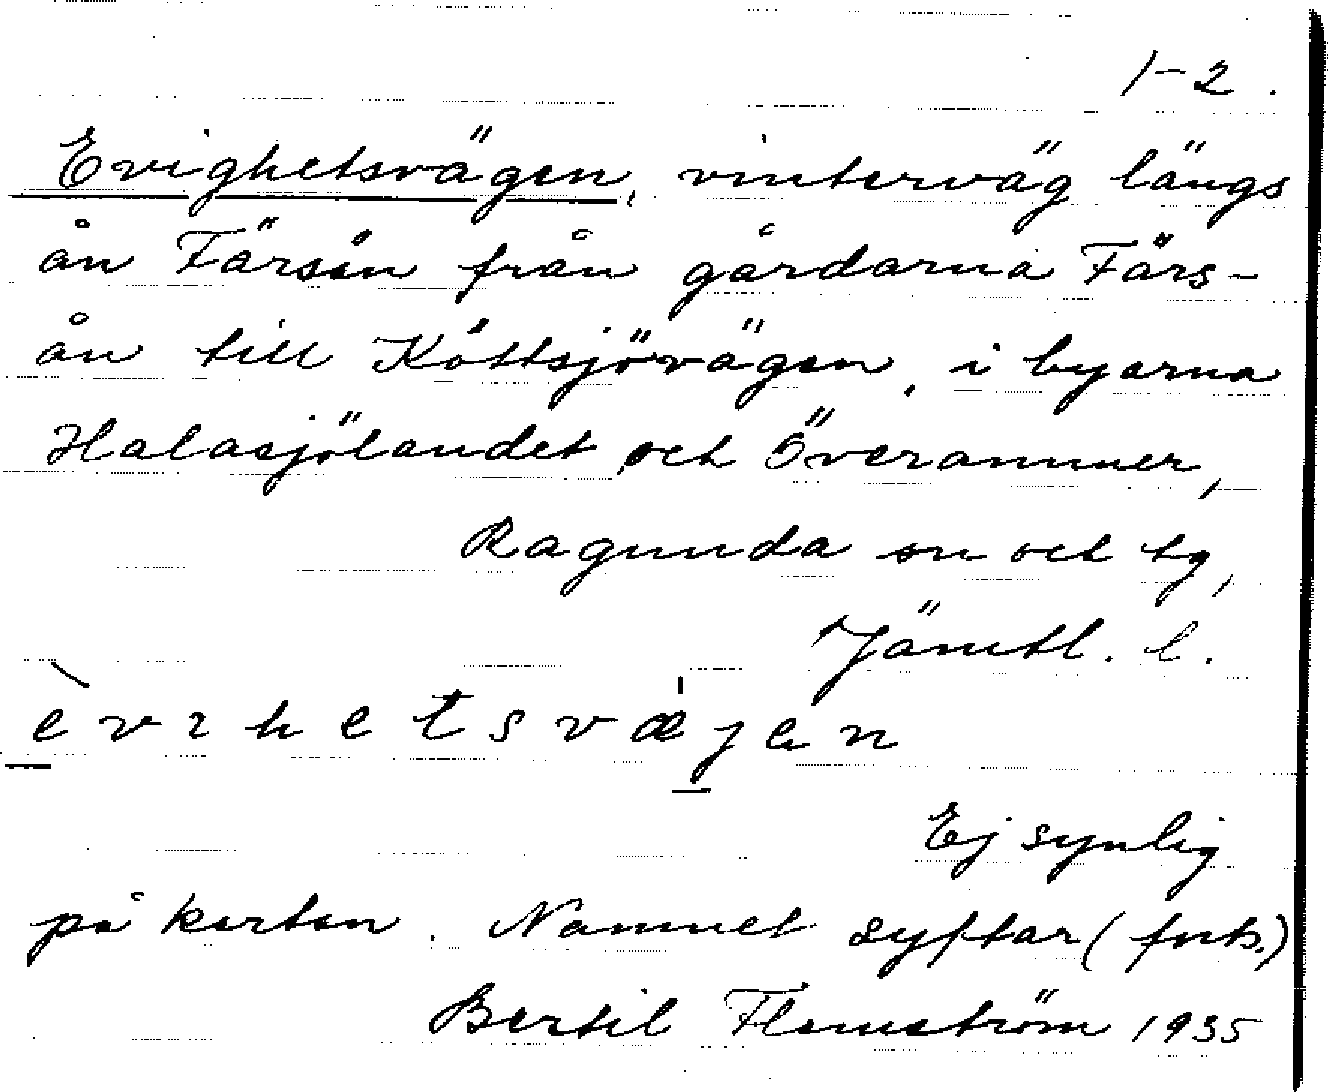 1-2.
Evighetsvägen, vinterväg längs
ån Färsån från gårdarna Färs-
ån till Köttsjövägen, i byarna
Halasjölandet och Överammer,
Ragunda sn och tg,
Jämtl. l.
èvıhetsvæjen
Ej synlig
på kartan. Namnet syftar (forts.)
Bertil Flemström 1935